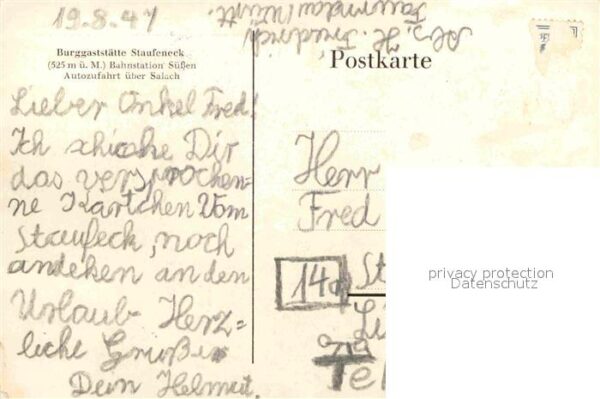 19.8.47
Burggaststätte Staufeneck
(525 m ü. M.) Bahnstation Süßen
Autozufahrt über Salach
Lieber Onkel Fred!
Ich schicke Dir
das versprochen=
ne Kärtchen Vom
Staufeck, noch
andeken an den
Urlaub Herz=
liche Grüße
Dein Helmut.
Abs. H. Friedrich
Postkarte
Herr
Fred
14a
privacy protection
Datenschutz